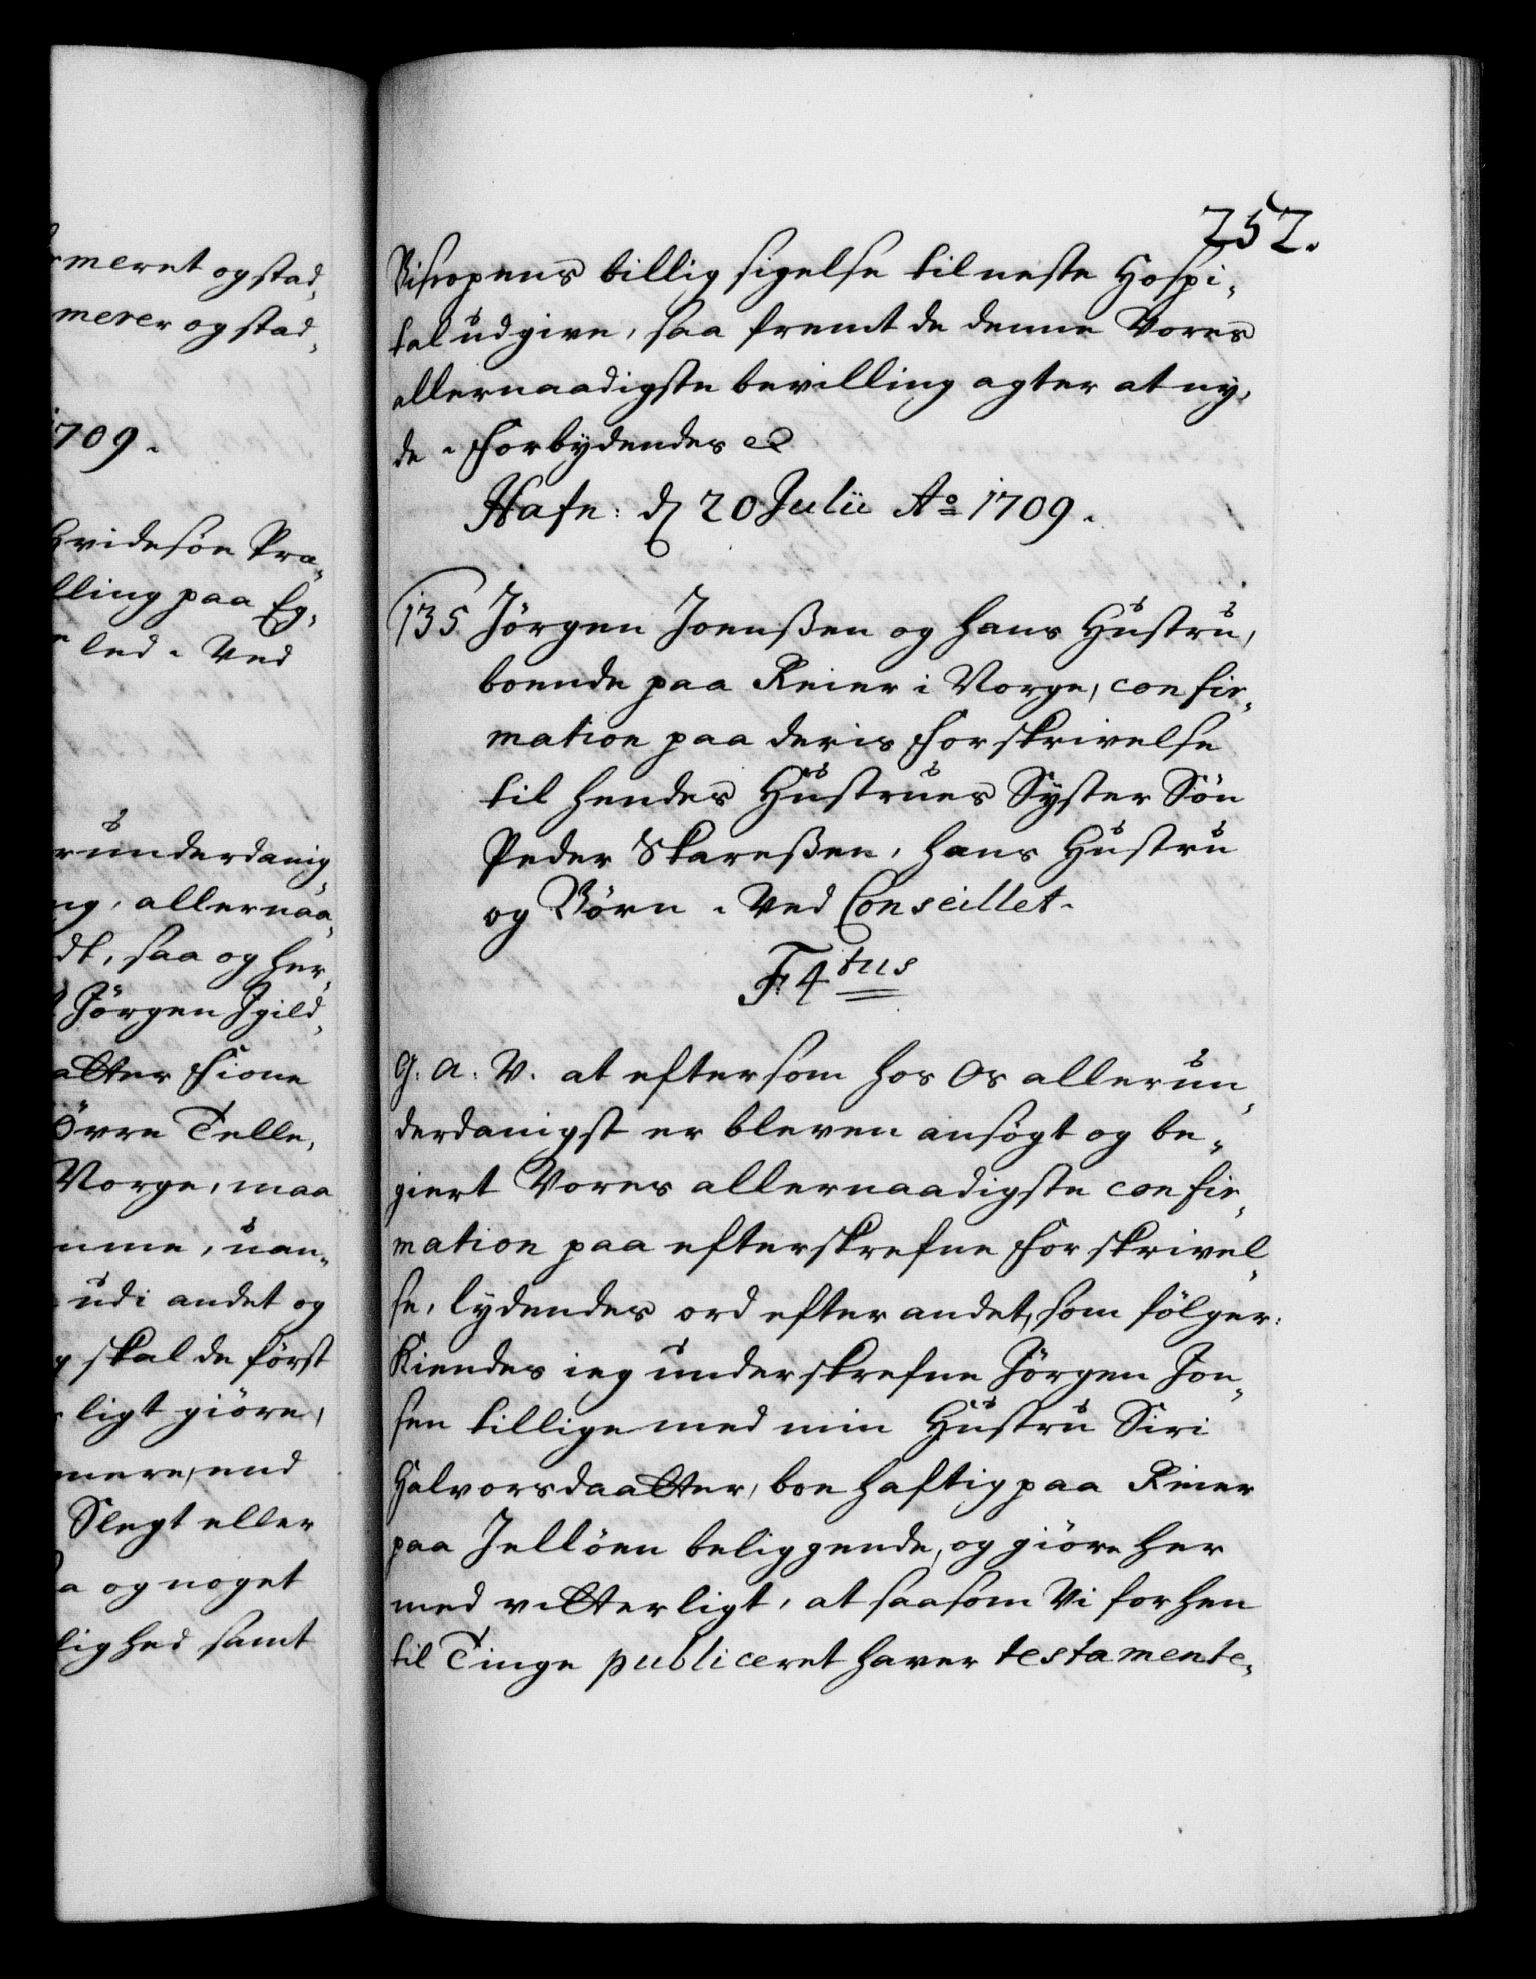 meret og stad„
merer og stad„
1709.
Hvidesön Præ„
lling paa Eg„
led. Ved
runderdanig
ng, allernaa„
dt, saa og her„
Jörgen Igild„
atter Fione
Övre Telle„
Norge, maa
mme, uan„
udi andet og
skal de först
ligt giöre,
mere, end
Slegt eller
og noget
lighed samt
252.
Biscopens billig sigelse til neste Hospi„
tal udgive, saa fremt de denne Vores
allernaadigste bevilling agter at ny„
de. Forbydendes &
Hafn: d 20 Julii Ao 1709.
135 Jörgen Joenßen og hans Hustru,
boende paa Reier i Norge, confir„
mation paa deris Forskrivelse
til hendes Hustrues Syster Sön
Peder Skareßen, hans Hustru
og Börn. Ved Conseillet.
F: 4tus
G: A: V. at eftersom hos Os allerun„
derdanigst er bleven ansögt og be„
giert Vores allernaadigste confir„
mation paa efterskrefne Forskrivel„
se, lydendes ord efter andet, som fölger:
Kiendes ieg underskrefne Jörgen Jon„
sen tillige med min Hustru Siri
Halvorsdaatter, boe haftig paa Reier
paa Jellöen beliggende, og giöre her
med vitterligt, at saasom Vi forhen
til Tinge publiceret haver testamente„